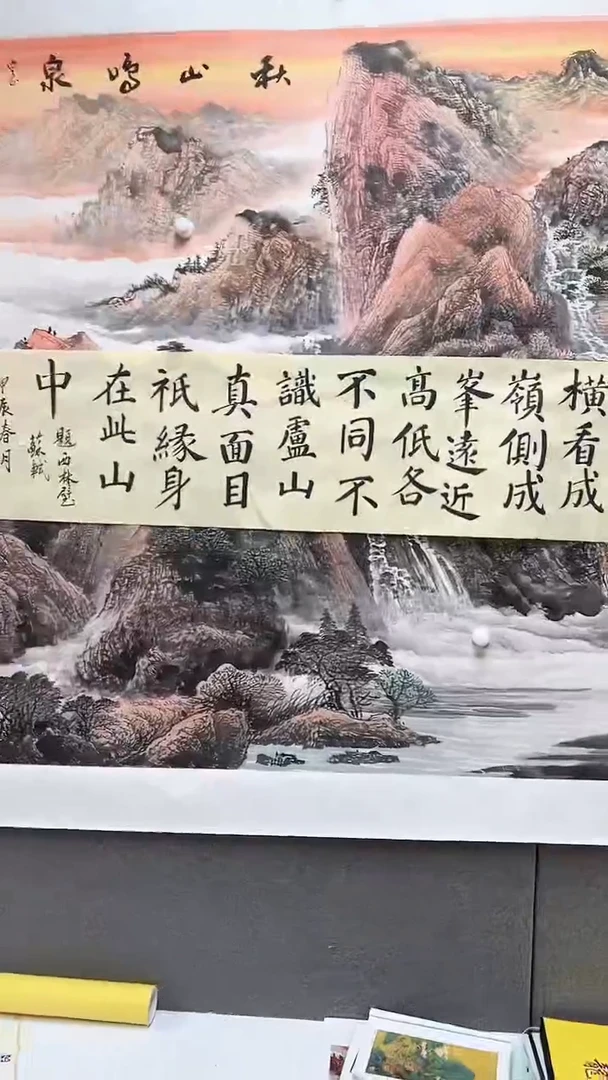 秋山鳴泉
橫看成
嶺側成
峯遠近
高低各
不同不
識盧山
真面目
祇緣身
在此山
中
題西林壁
蘇軾
甲辰春月